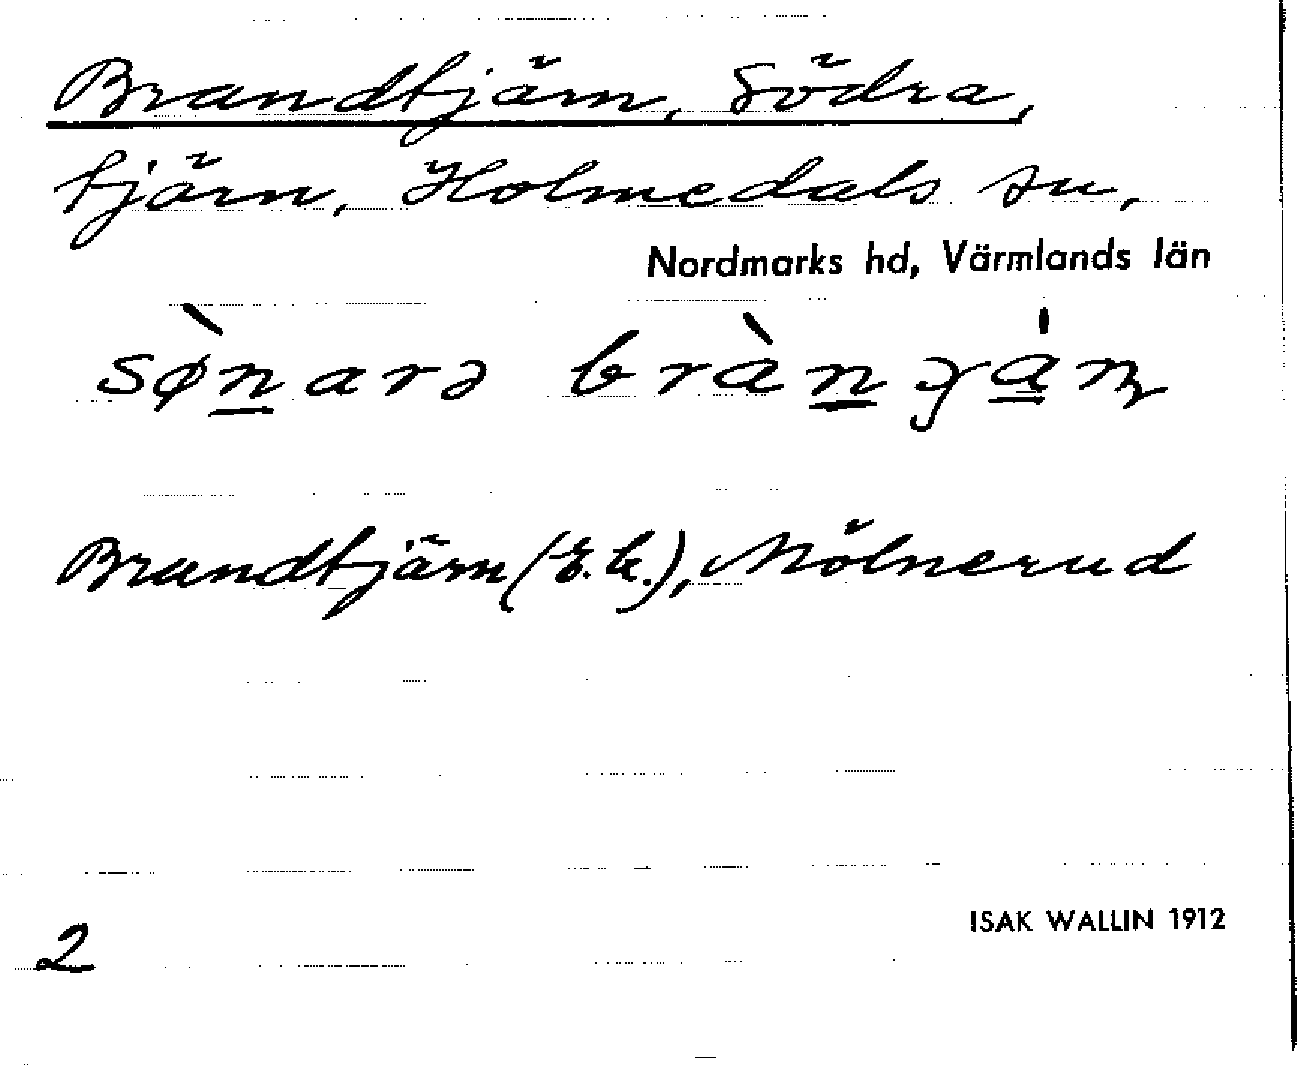 Brandtjärn, Södra,
tjärn, Holmedals sn,
Nordmarks hd, Värmlands län
sø̀n̲arə bràn̲əɟá̲ɳ
Brandtjärn (E.k.), Mölnerud
ISAK WALLIN 1912
2